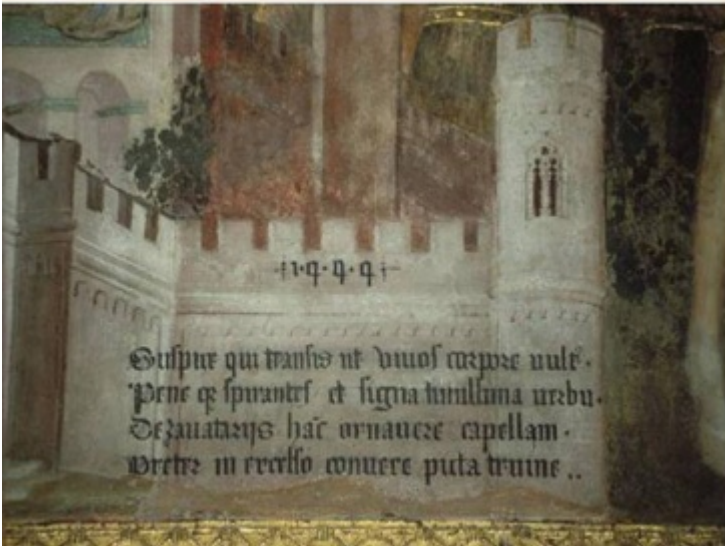 ·1·4·4·4·
Suspice qui transis ut vivos corpore vult⁹.
Pene qꝫ spirantes et signa simillima verbis.
De zavatarijs hāc ornavere capellam.
Preter in excelso truine ..